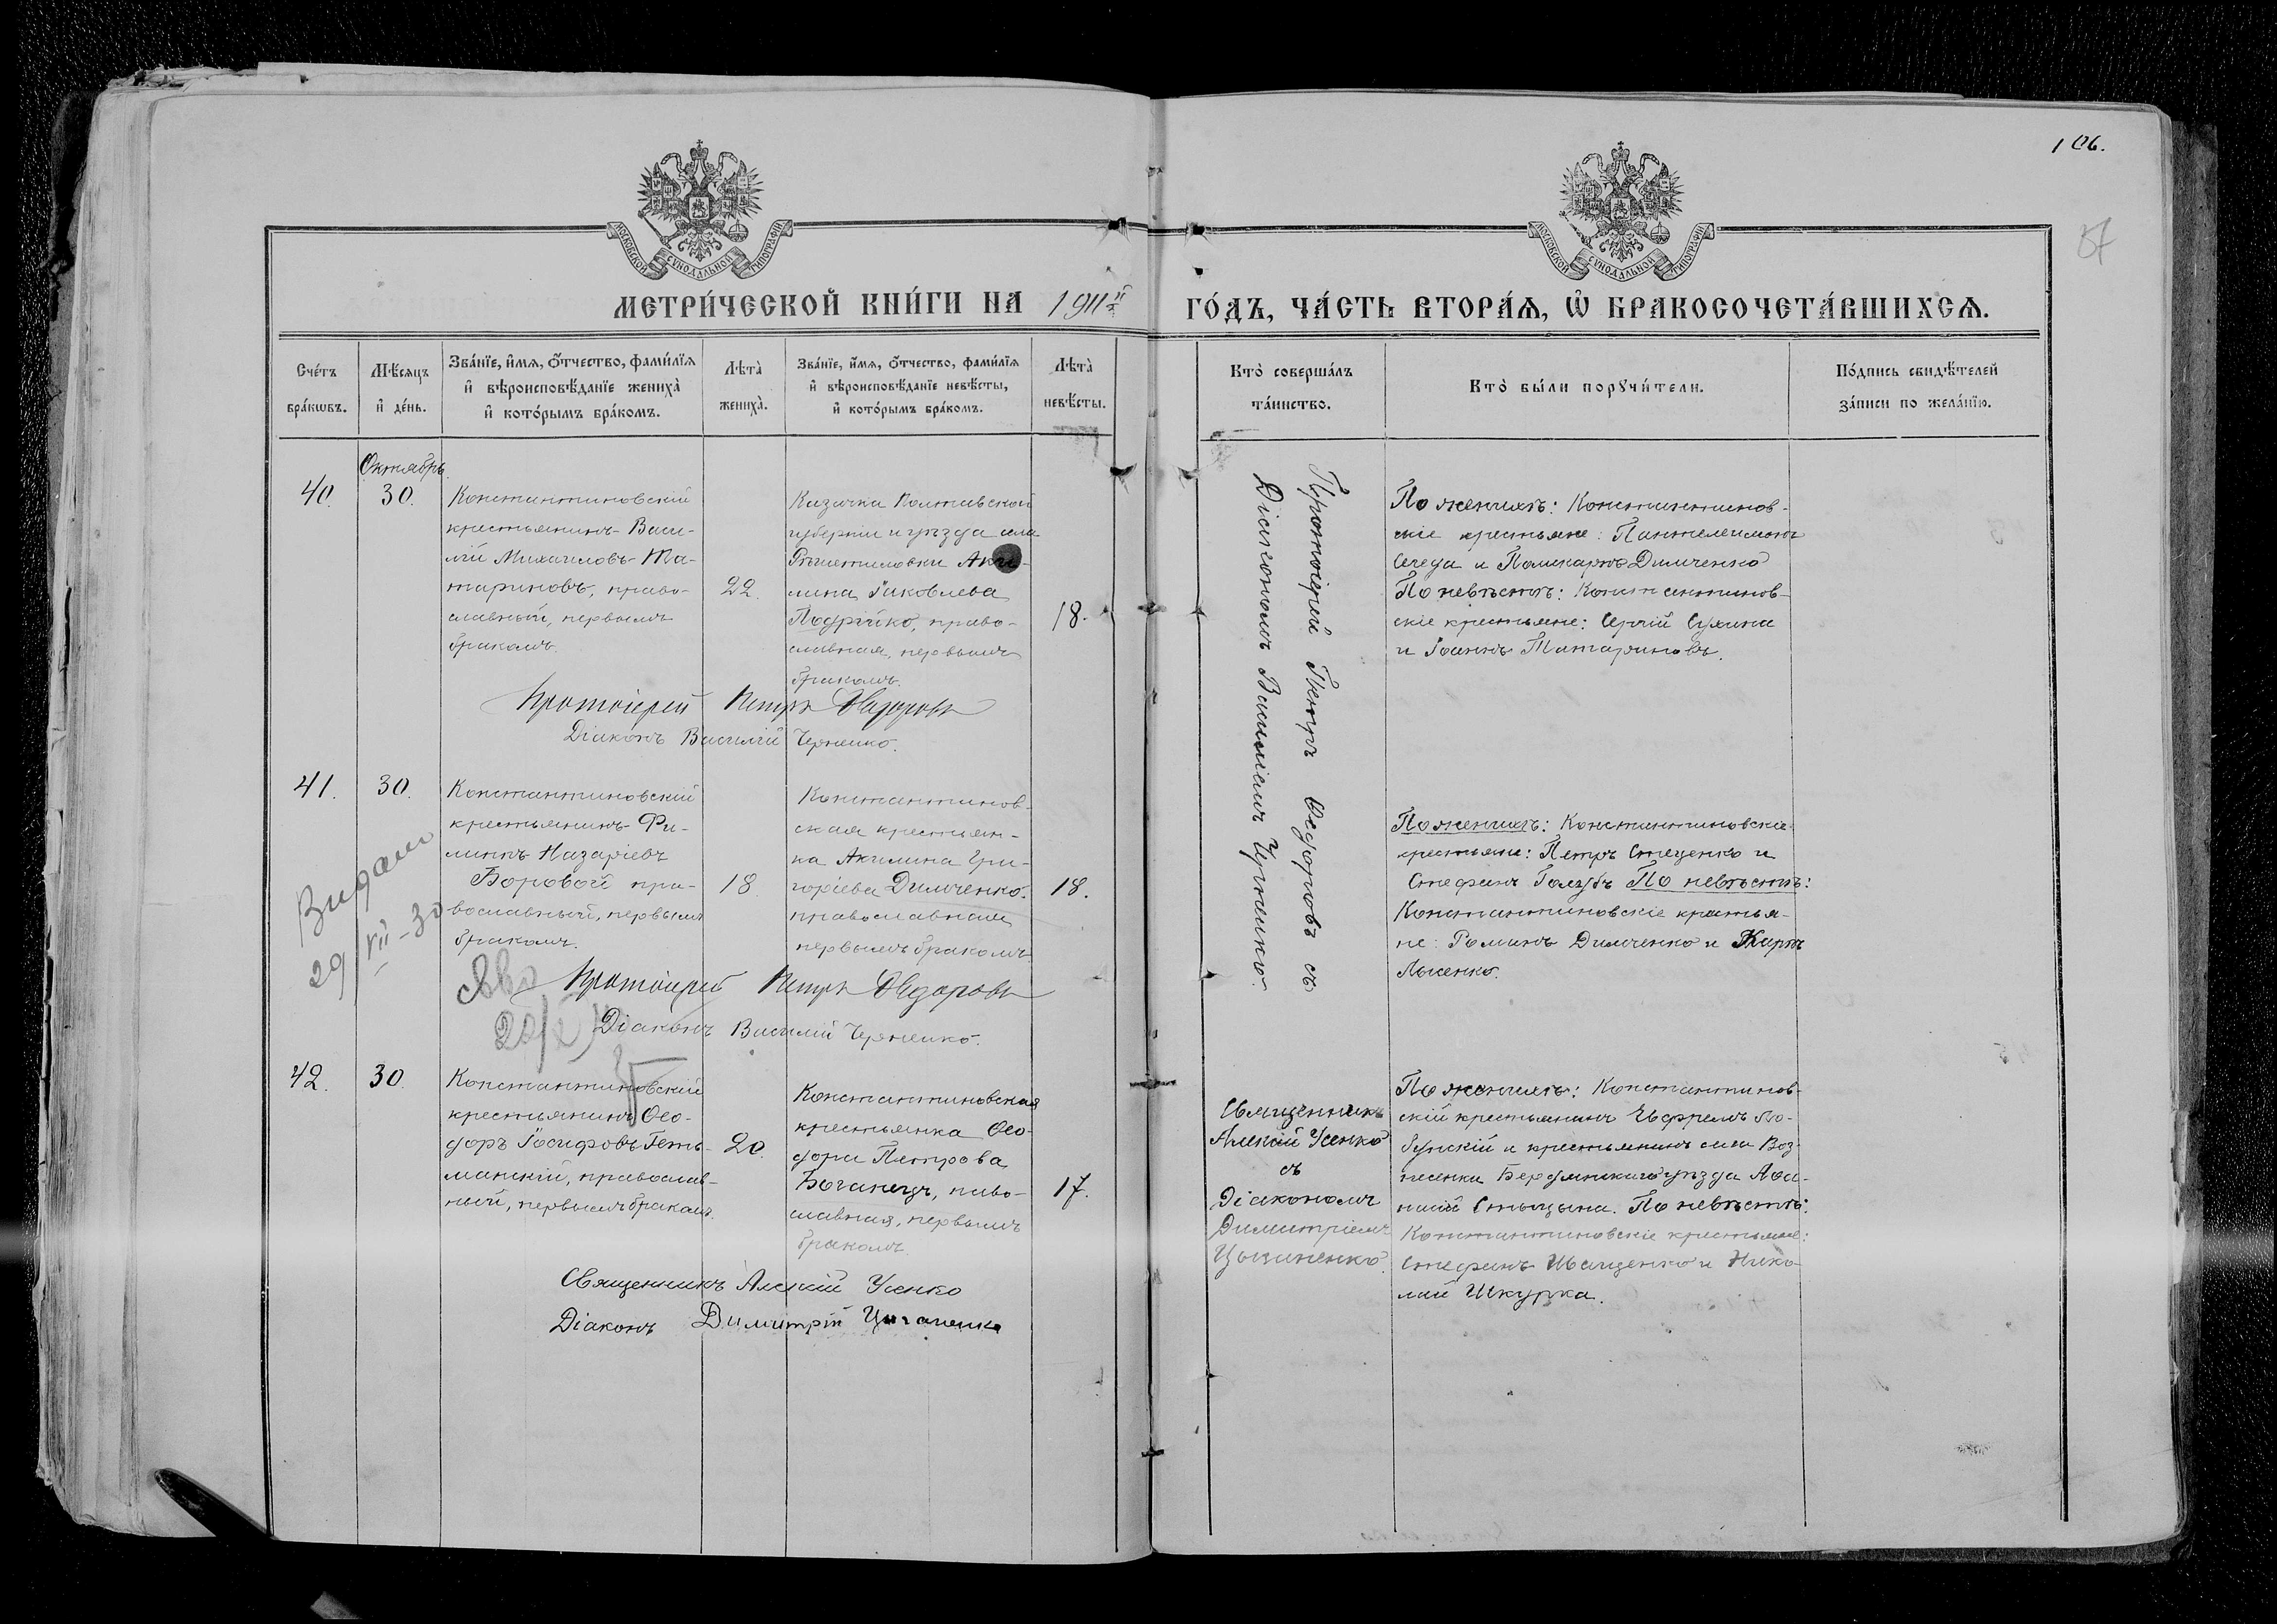 106.
57
МОСКОВСКОЙ СѴНОДАЛЬНОЙ ТИПОГРАФІИ
МОСКОВСКОЙ СѴНОДАЛЬНОЙ ТИПОГРАФІИ
МЕТРИ́ЧЕСКОЙ КНИ́ГИ НА 1911й
ГО́ДЪ, ЧА́СТЬ ВТОРА́Ѧ, Ѽ БРАКОСОЧЕТА́ВШИХСѦ.
Сче́тъ
бра́кѡвъ.
Мѣ́сѧцъ
и҆ де́нь.
Зва́нїе, и҆́мѧ, ѻ҆́тчество, фами́лїѧ
и҆ вѣроисповѣ́данїе жениха̀
и҆ кото́рымъ бра́комъ.
Лѣта̀
жениха̀.
Зва́нїе, и҆́мѧ, ѻ҆́тчество, фами́лїѧ
и҆ вѣроисповѣ́данїе невѣ́сты,
и҆ кото́рымъ бра́комъ.
Лѣта̀
невѣ́сты.
Кто̀ соверша́лъ
та́инство.
Кто̀ бы́ли порꙋчи́тели.
По́дпись свидѣ́телей
за́писи по жела́нїю.
Октябрь
40.
30.
Константиновскій
крестьянинъ Васи-
лій Михаиловъ Та-
тариновъ, право-
славный, первымъ
бракомъ.
22.
Казачка Полтавской
губерніи и уѣзда села
Рѣшетиловки Аки-
лина Іаковлева
Подрійко, право-
славная, первымъ
бракомъ.
18.
Протоіерей Петръ Ѳедоровъ съ
Діакономъ Василіемъ Черненко.
По женихѣ: Константинов-
скіе крестьяне: Пантелеимонъ
Середа и Поликарпъ Димченко
По невѣстѣ: Константинов-
скіе крестьяне: Сергій Сухина
и Іоаннъ Татариновъ.
Протоіерей Петръ Ѳедоровъ
Діаконъ Василій Черненко.
41.
30.
Константиновскій
крестьянинъ Фи-
липпъ Назаріевъ
Боровой пра-
вославный, первымъ
бракомъ.
18
Константинов-
ская крестьян-
ка Акилина Гри-
горіева Димченко.
православная
первымъ бракомъ
18.
По женихѣ: Константиновскіе
крестьяне: Петръ Стеценко и
Стефанъ Голубъ По невѣстѣ:
Константиновскіе крестья-
не: Романъ Димченко и Карпъ
Лысенко.
Видано
29/VII-30
Протоіерей Петръ Ѳедоровъ
Діаконъ Василій Черненко.
42.
30.
Константиновскій
крестьянинъ Ѳео-
доръ Іосифовъ Геть-
манскій, православ-
ный, первымъ бракомъ.
20.
Константиновская
крестьянка Ѳео-
дора Петрова
Боганецъ, паво-
славная, первымъ
бракомъ.
17.
Священникъ
Алексій Усенко
съ
Діакономъ
Димитріемъ
Цыганенко.
По женихѣ: Константинов-
скій крестьянинъ Ефремъ
и крестьянинъ села Воз-
несенки Бердянскаго уѣзда
По невѣстѣ:
Константиновскіе крестьяне:
Стефанъ Иващенко и Нико-
лай Шкурка.
Священникъ Алексій Усенко
Діаконъ Димитрій Цыганенко